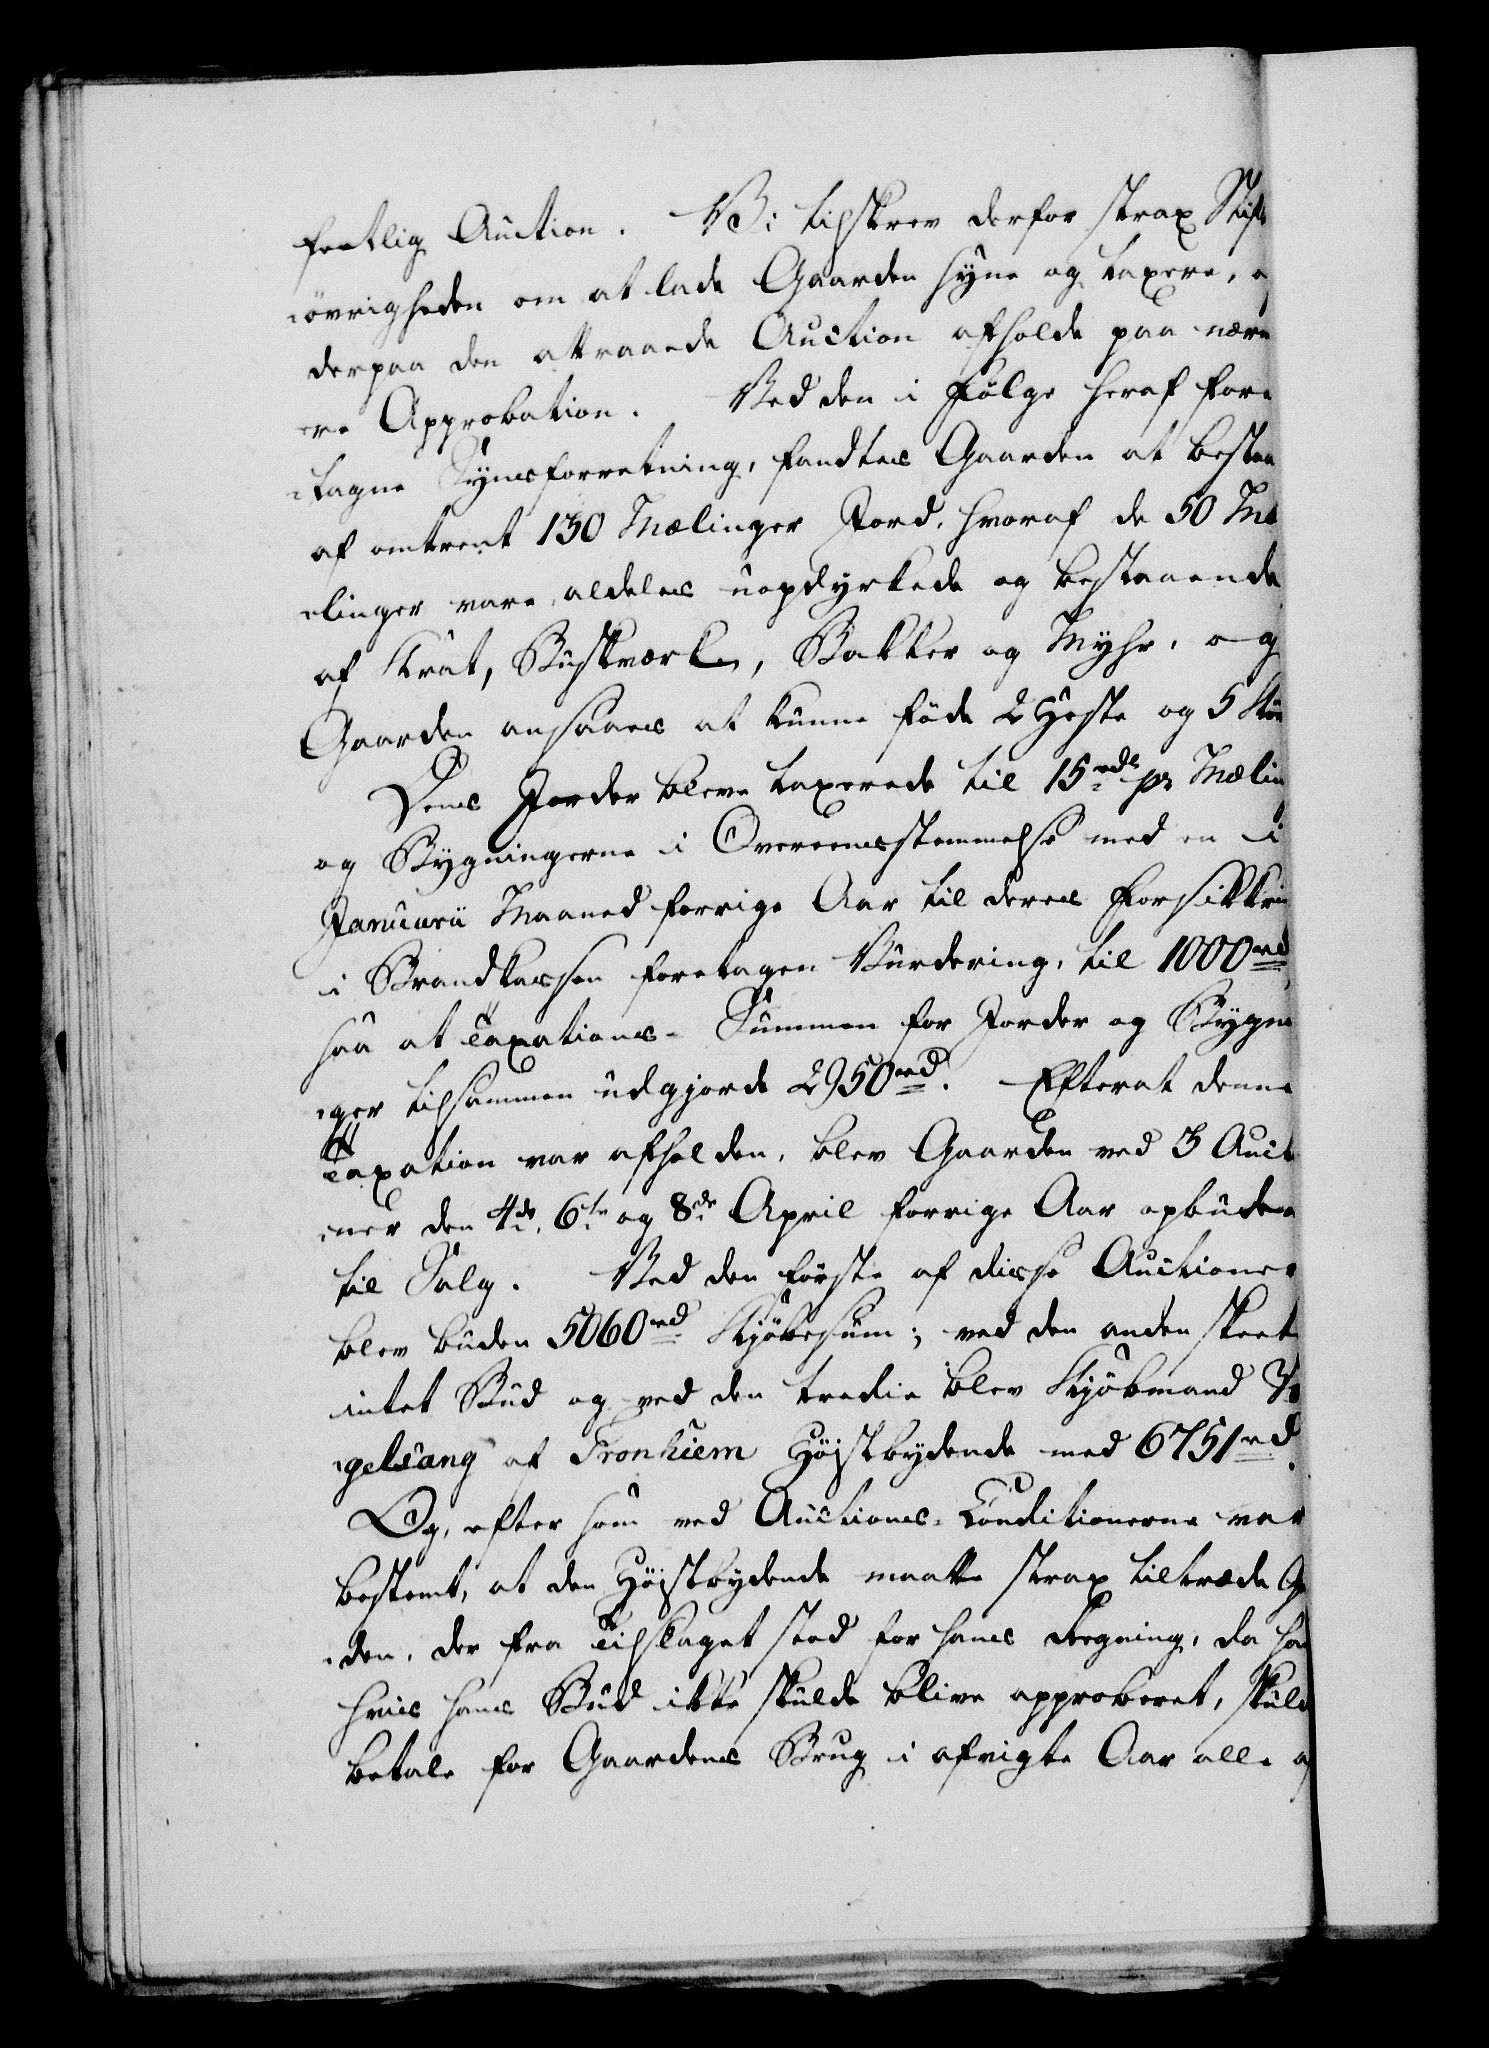 fentlig Auction. Vi tilskrev derfor strax Stift
øvrigheden om at lade Gaarden syne og taxere, o
derpaa den attraaede Auction afholde paa nærm
ere Approbation. Ved den i Følge heraf fore
tagne Synsforretning, fandtes Gaarden at bestaa
af omtrent 130 Mælinger Jord, hvoraf de 50 Mæ
linger vare aldeles uopdyrkede og bestaaende
af Krat, Buskværk, Bakker og Myhr, og
Gaarden ansaaes at kunne føde 2 Heste og 5 Kø
Dens Jorder bleve taxerede til 15 rdl pr Mælin
og Bygningerne i Overeensstemmelse med en i
Januarii Maaned forrige Aar til deres Forsikkri
i Brandkassen foretagen Vurdering, til 1000 rd,
saa at Taxations-Summen for Jorder og Bygni
ger tilsammen udgjorde 2950 rd. Efterat denne
Taxation var afholden, blev Gaarden ved 3 Auct
ner den 4de, 6te og 8de April forrige Aar opbuden
til Salg. Ved den første af disse Auctioner
blev buden 5060 rd Kjøbesum; ved den anden skeete
intet Bud og ved den tredie blev Kjøbmand Vo
gelsang af Tronhiem Høistbydende med 6751 rd.
Og, efter som ved Auctions-Conditionerne var
bestemt, at den Høistbydende maatte strax tiltræde Ga
den, der fra Tilslaget stod for hans Regning, da han
hvis hans Bud ikke skulde blive approberet, skuld
betale for Gaardens Brug i afvigte Aar alle a